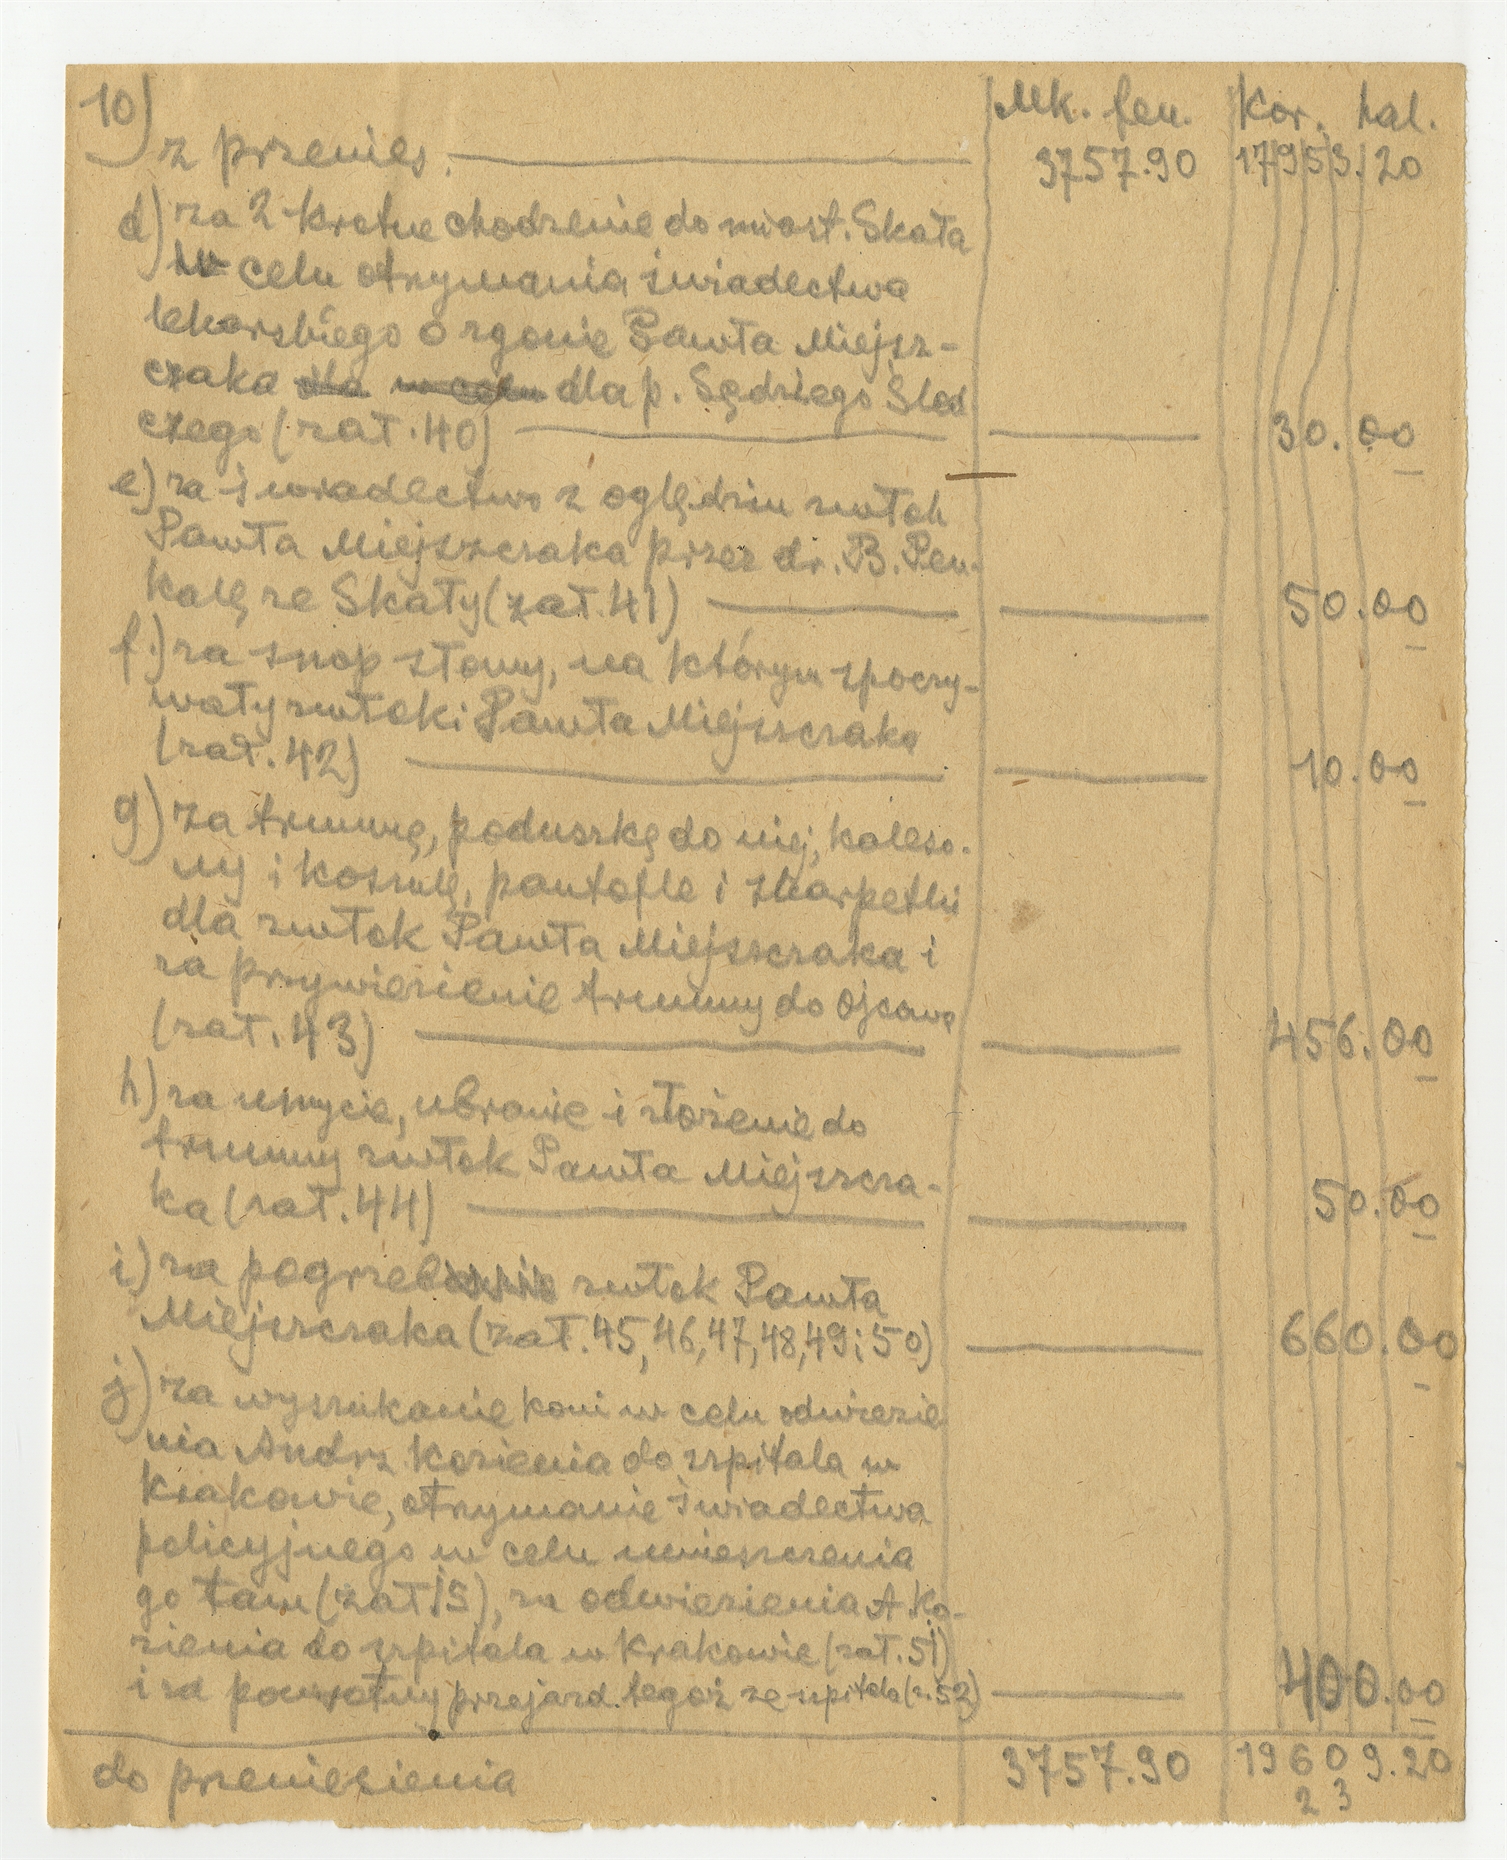 10)
Mk. fen. Kor. hal.
z przenies. 3757.90 17953.20
d) za 2-krotne chodzenie do miast. Skała
w celu otrzymania świadectwa
lekarskiego o zgonie Pawła Miejsz-
czaka dla w celu dla p. Sędziego Śled
czego (zał. 40) 30.00
e) za świadectwo z oględzin zwłok
Pawła Miejszczaka przez dr. B. Pen-
kalę ze Skały (zał. 41) 50.00
f.) za snop słomy, na którym spoczy-
wały zwłoki Pawła Miejszczaka
(zał. 42) 10.00
g) za trumnę, poduszkę do niej, kaleso-
ny i koszulę, pantofle i skarpetki
dla zwłok Pawła Miejszczaka i
za przywiezienie trumny do Ojcowa
(zał. 43) 456.00
h) za umycie, ubranie i złożenie do
trumny zwłok Pawła Miejszcza-
ka (zał. 44) 50.00
i) za pogrzebanie zwłok Pawła
Miejszczaka (zał. 45, 46, 47, 48, 49 i 50) 660.00
j) za wyszukanie koni w celu odwiezie
nia Andrz Kozienia do szpitala w
Krakowie, otrzymanie świadectwa
policyjnego w celu umieszczenia
go tam (zał 15), za odwiezienia A Ko-
zienia do szpitala w Krakowie (zał. 51)
i za powrotny przejazd tegoż ze szpitala (z. 52) 400.00
do przeniesienia 3757.90 19609.20
2 3